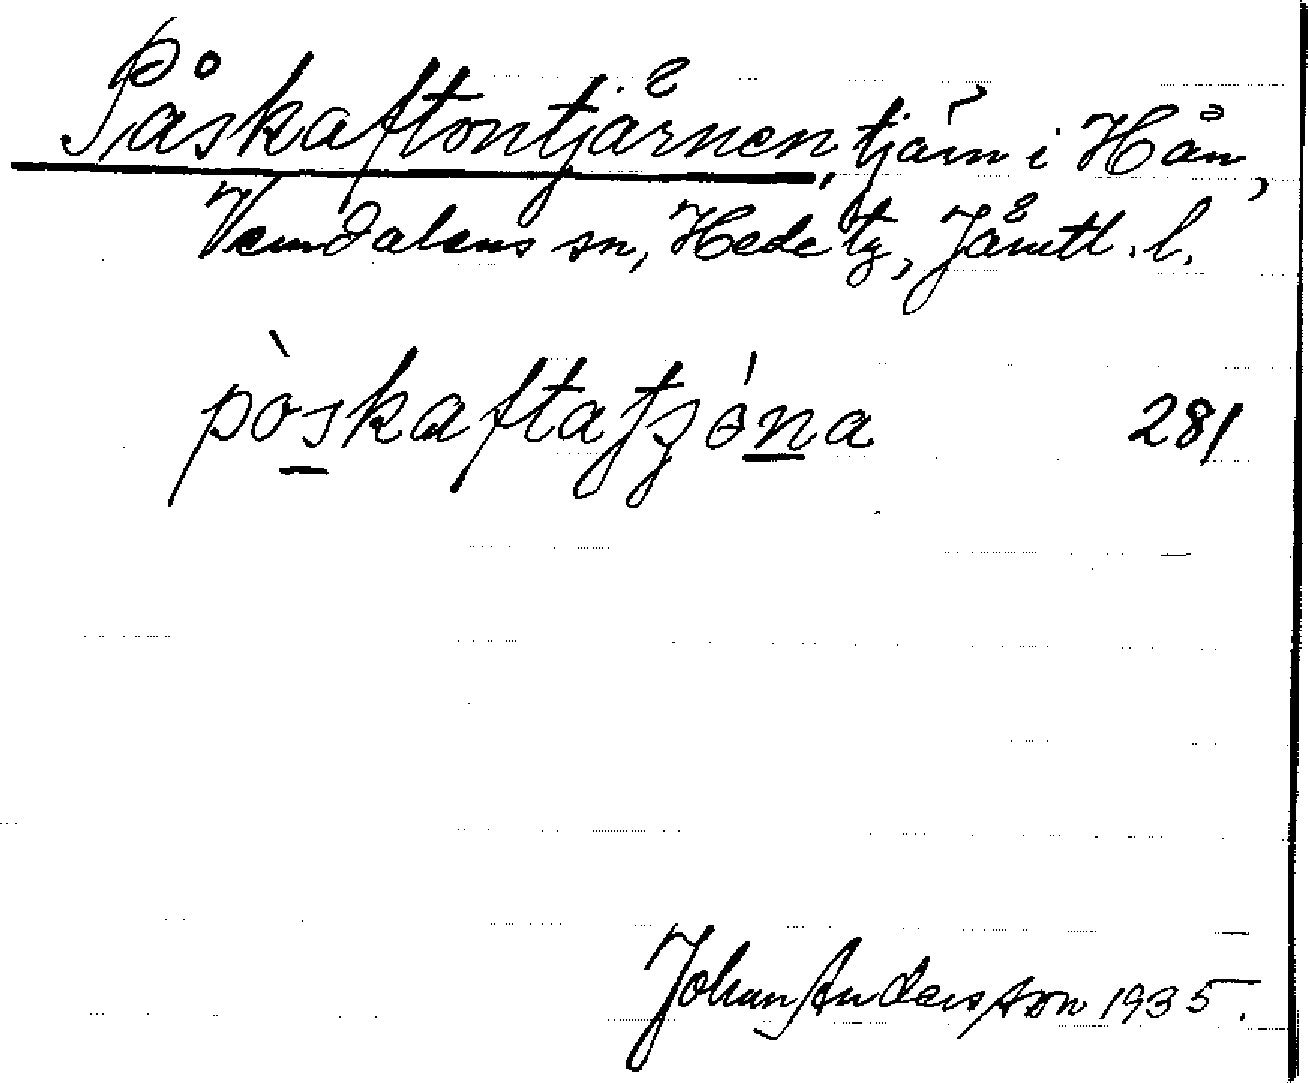 Påskaftontjärnen, tjärn i Hån,
Vemdalens sn, Hede tg, Jämtl. l.
pòskaftatʒóna 281
Johan Andersson 1935.